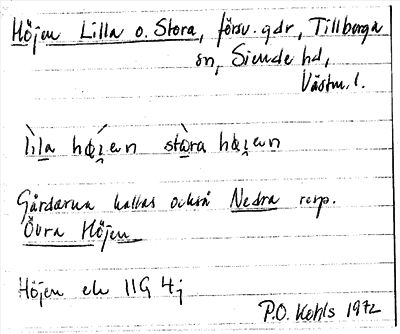 Höjen Lilla o. Stora, försv. gdr, Tillberga
sn, Siende hd,
Västm. l.
Gårdarna kallas också Nedra resp.
Övra Höjen
Höjen ek 11G 4j
P.O. Kehls 1972